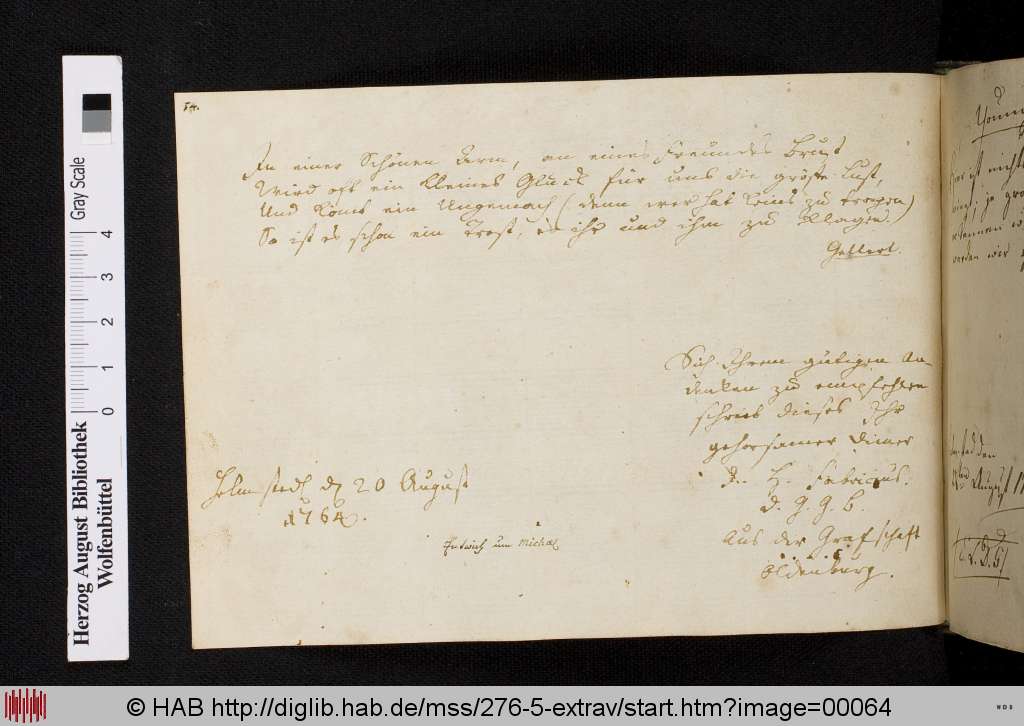 54.
In einer Schönen Arm, an eines Freundes Brust
Wird oft ein kleines Glück für uns die gröste Lust,
Und kömt ein Ungemach (denn wer hat keins zu tragen)
So ist es schon ein Trost, es ihr und ihm zu klagen.
Gellert.
Sich Ihrem gütigen An-
denken zu empfehlen
schrieb dieses Ihr
gehorsamer Diener
H. Fabricius.
d. G. G. B.
Aus der Grafschaft
Oldenburg.
Helmstedt d. 20 August
1764.
um Micha
Herzog August Bibliothek
Wolfenbüttel
Gray Scale
0 1 2 3 4
© HAB http://diglib.hab.de/mss/276-5-extrav/start.htm?image=00064